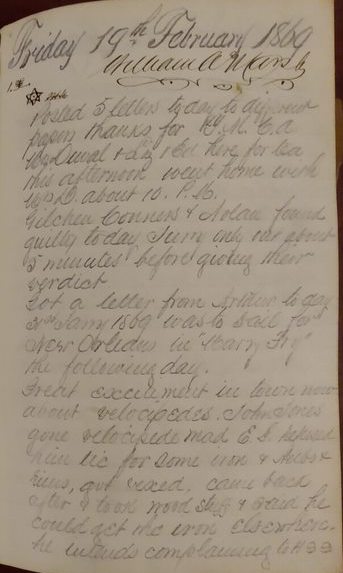 Friday 19th February 1869
William A Marsh
Posted 5 letters to day to different
papers thanks for
Duval & here for tea
this afternoon went home with
about 10. P.M.
Gilchen Conners & Nolan found
guilty to day Jurry only out about
5 minutes before giving their
verdict
Got a letter from Arthur to day
1869 was to Sail for
New Orleans in "Harry Fry"
the following day.
Great excitement in town now
about velocipedes. John Jones
gone velocipede mad E.S. refused
him for some iron &
got vexed, came back
after & took wood stuff & said he
could get the iron Elsewhere.
he intends complaining to